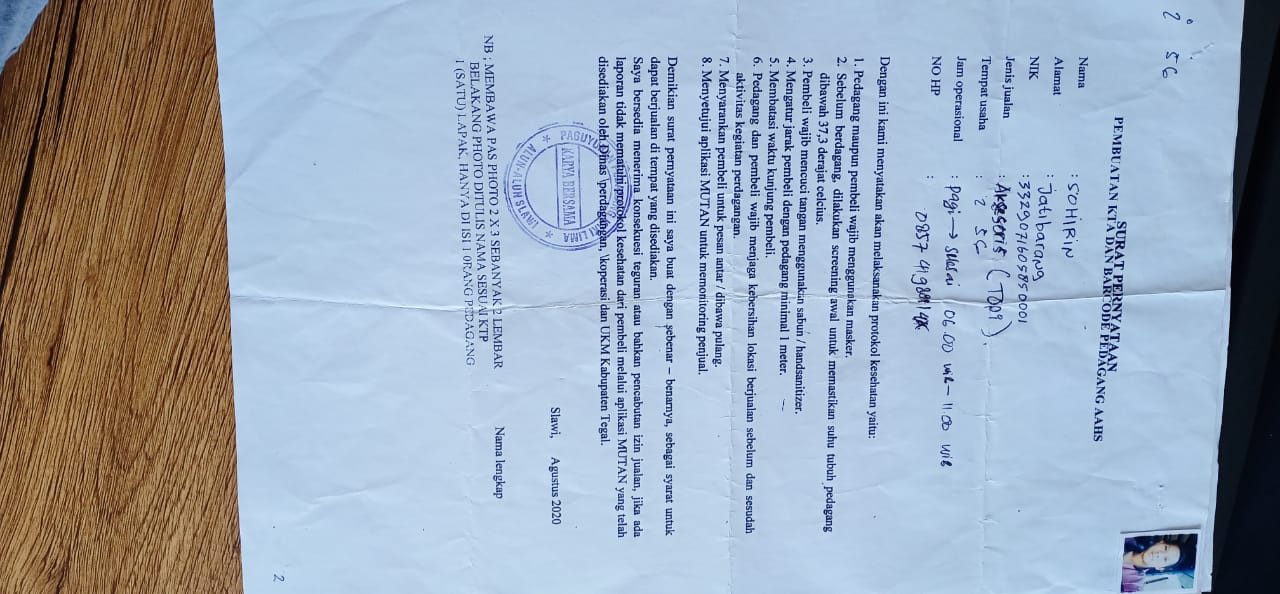 2 56
SURAT PERNYATAAN
PEMBUATAN KTA DAN BARCODE PEDAGANG AAHS
Nama : SOHIRIN
Alamat : Jatibarang
NIK : 3329071605850001
Jenis jualan : Aksesoris (TOPI).
Tempat usaha : 2 56
Jam operasional : pagi → selesai 06.00 WIB – 11.00 WIB
NO HP :
Dengan ini kami menyatakan akan melaksanakan protokol kesehatan yaitu:
1. Pedagang maupun pembeli wajib menggunakan masker.
2. Sebelum berdagang, dilakukan screening awal untuk memastikan suhu tubuh pedagang
dibawah 37,3 derajat celcius.
3. Pembeli wajib mencuci tangan menggunakan sabun / handsanitizer.
4. Mengatur jarak pembeli dengan pedagang minimal 1 meter.
5. Membatasi waktu kunjung pembeli.
6. Pedagang dan pembeli wajib menjaga kebersihan lokasi berjualan sebelum dan sesudah
aktivitas kegiatan perdagangan.
7. Menyarankan pembeli untuk pesan antar / dibawa pulang.
8. Menyetujui aplikasi MUTAN untuk memonitoring penjual.
Demikian surat pernyataan ini saya buat dengan sebenar – benarnya, sebagai syarat untuk
dapat berjualan di tempat yang disediakan.
Saya bersedia menerima konsekuesi teguran atau bahkan pencabutan izin jualan, jika ada
laporan tidak mematuhi protokol kesehatan dari pembeli melalui aplikasi MUTAN yang telah
disediakan oleh Dinas perdagangan, koperasi dan UKM Kabupaten Tegal.
Slawi, Agustus 2020
KARYA BERSAMA
ALUN-ALUN SLAWI
Nama lengkap
NB : MEMBAWA PAS PHOTO 2 X 3 SEBANYAK 2 LEMBAR
BELAKANG PHOTO DITULIS NAMA SESUAI KTP
1 (SATU) LAPAK, HANYA DI ISI 1 0RANG PEDAGANG
2